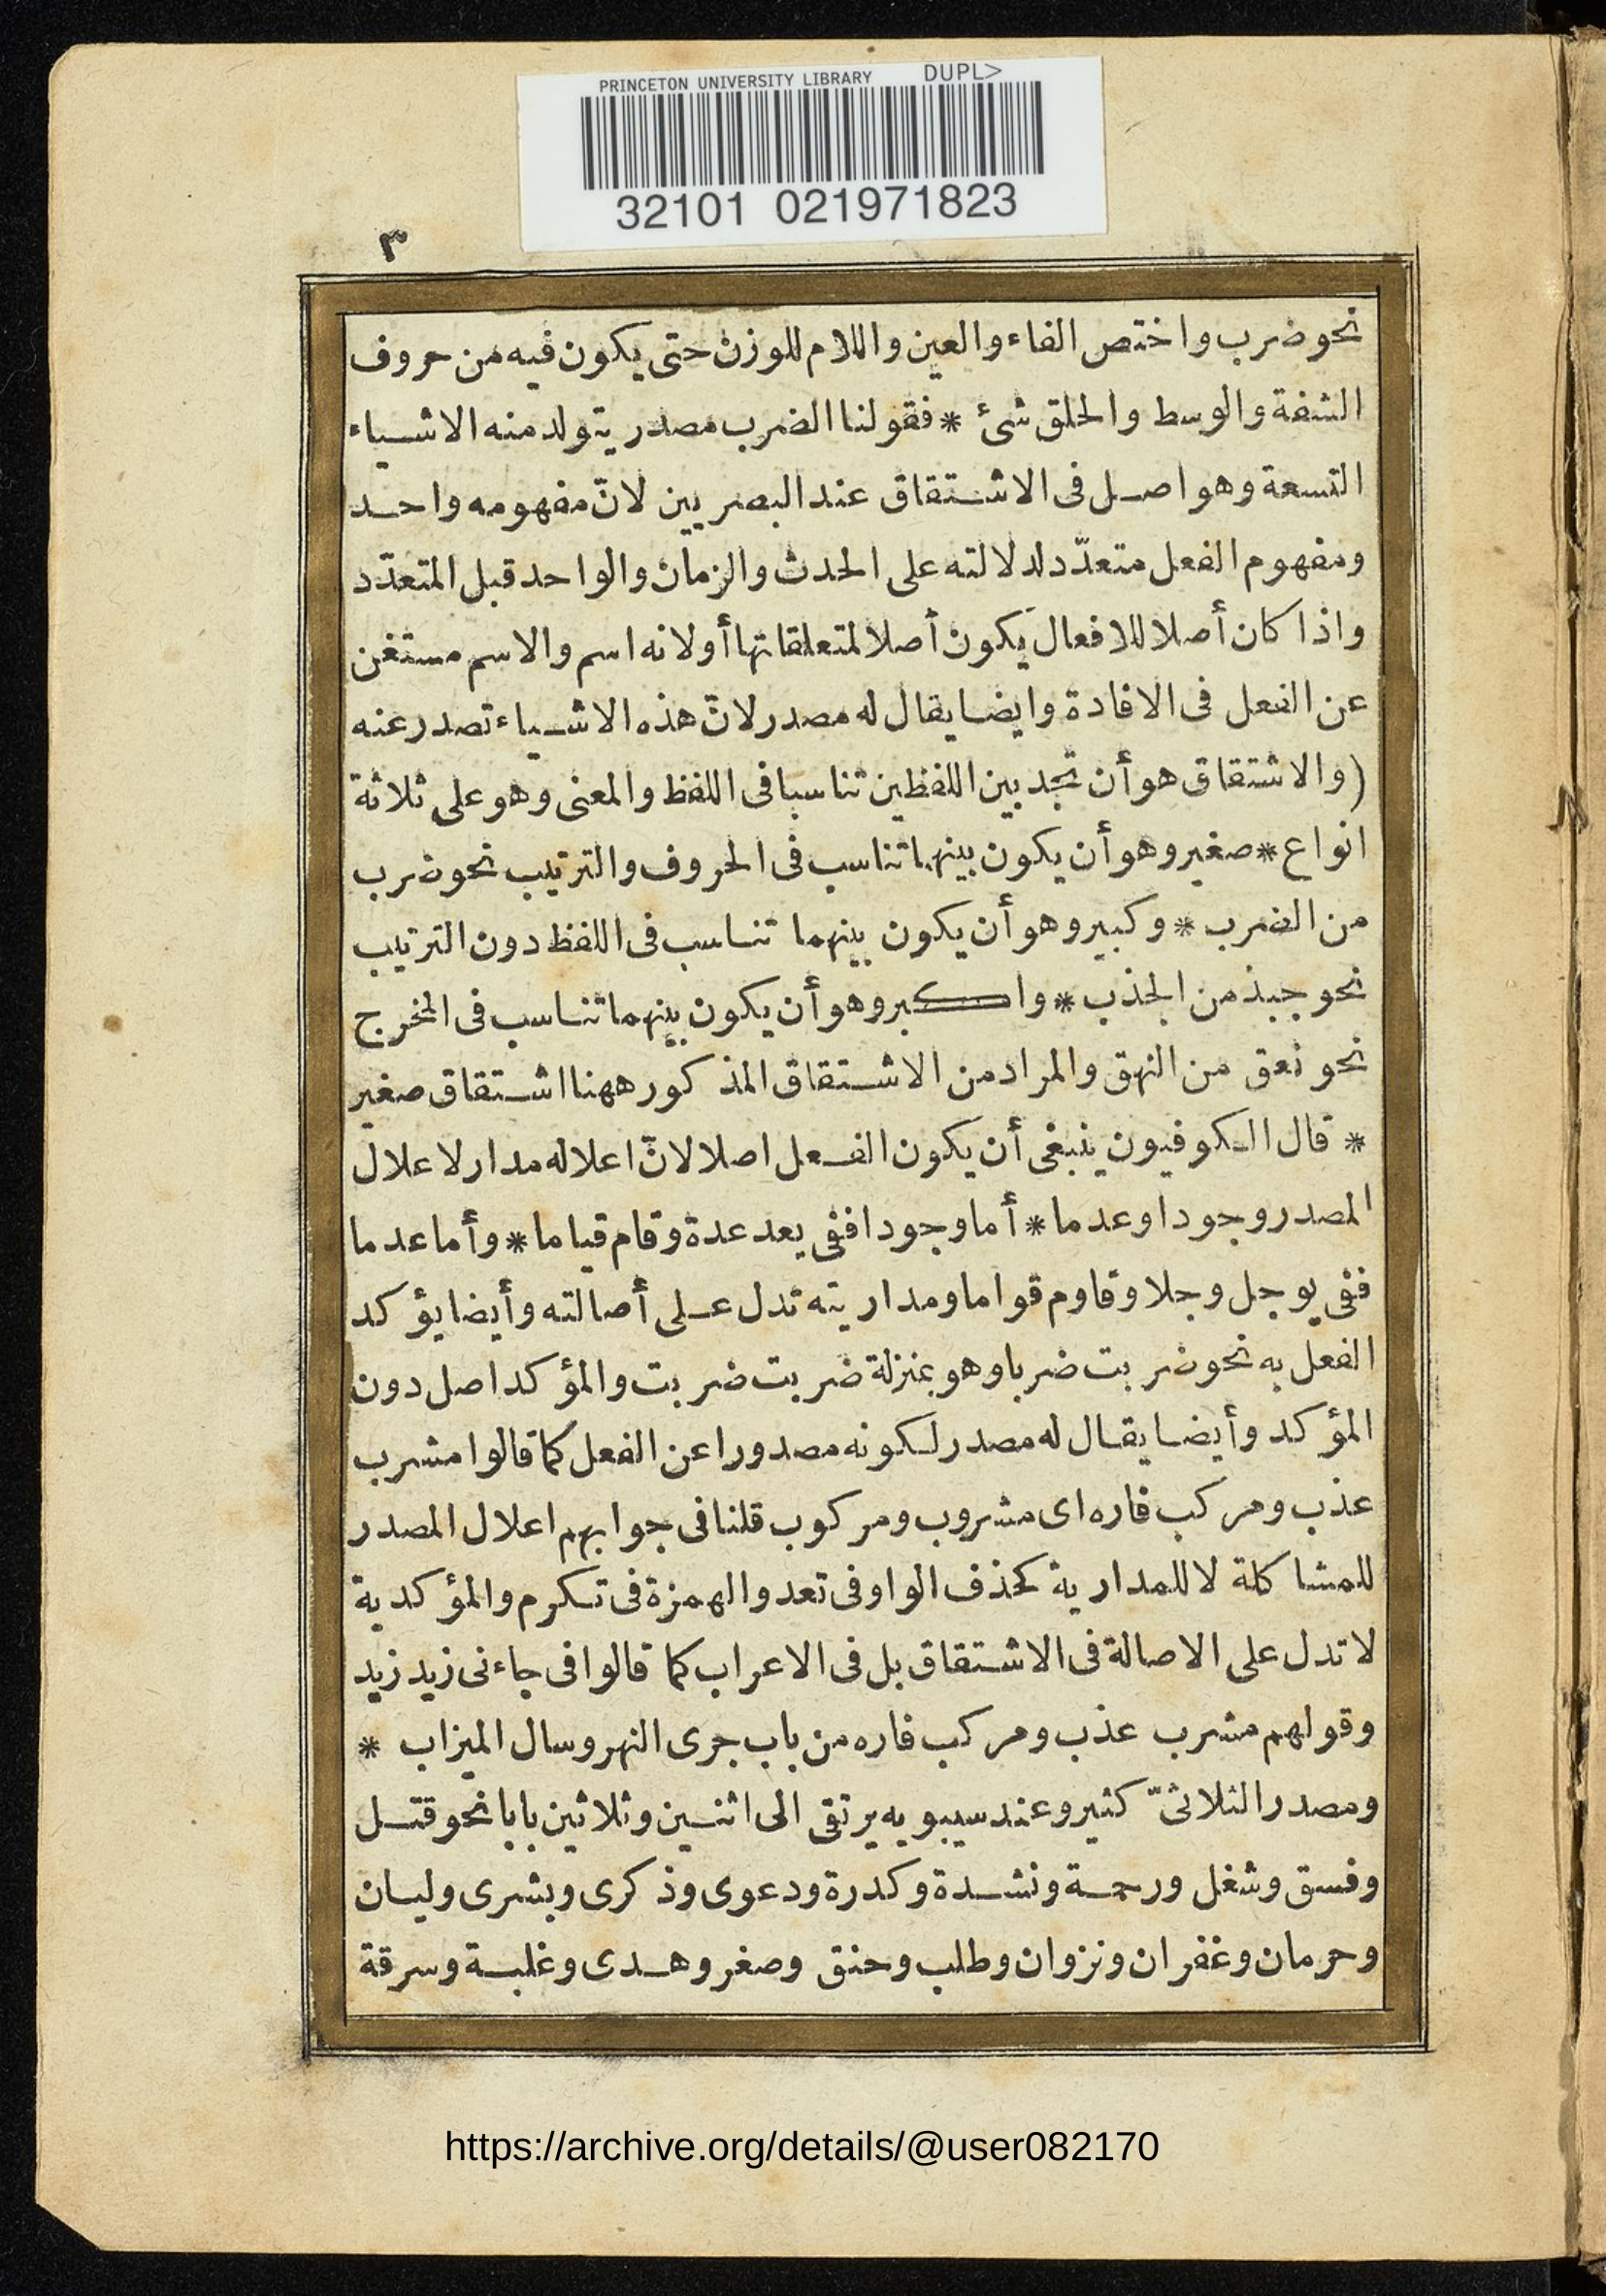 PRINCETON UNIVERSITY LIBRARY DUPL>
32101 021971823
٣
نحو ضرب واختص الفاء والعين واللام للوزن حتى يكون فيه من حروف
الشفة والوسط والحلق شئ * فقولنا الضرب مصدر يتولد منه الاشياء
التسعة وهو اصل فى الاشتقاق عند البصريين لانّ مفهومه واحد
ومفهوم الفعل متعدّد لدلالته على الحدث والزمان والواحد قبل المتعدّد
واذا كان أصلا للافعال يكون أصلا لمتعلقاتها أولانه اسم والاسم مستغن
عن الفعل فى الافادة وايضا يقال له مصدر لانّ هذه الاشياء تصدر عنه
(والاشتقاق هو أن تجد بين اللفظين تناسبا فى اللفظ والمعنى وهو على ثلاثة
انواع * صغير وهو أن يكون بينهما تناسب فى الحروف والترتيب نحو ضرب
من الضرب * وكبير وهو أن يكون بينهما تناسب فى اللفظ دون الترتيب
نحو جبذ من الجذب * واكبر وهو أن يكون بينهما تناسب فى المخرج
نحو نعق من النهق والمراد من الاشتقاق المذكور ههنا اشتقاق صغير
* قال الكوفيون ينبغى أن يكون الفعل اصلا لانّ اعلاله مدار لاعلال
المصدر وجودا وعدما * أما وجودا ففى يعد عدة وقام قياما * وأما عدما
ففى يوجل وجلا وقاوم قواما ومداريته تدل على أصالته وأيضا يؤكد
الفعل به نحو ضربت ضربا وهو بمنزلة ضربت ضربت والمؤكد اصل دون
المؤكد وأيضا يقال له مصدر لكونه مصدورا عن الفعل كما قالوا مشرب
عذب ومركب فاره اى مشروب ومركوب قلنا فى جوابهم اعلال المصدر
للمشاكلة لا للمدارية كحذف الواو فى تعد والهمزة فى تكرم والمؤكدية
لا تدل على الاصالة فى الاشتقاق بل فى الاعراب كما قالوا فى جاءنى زيد زيد
وقولهم مشرب عذب ومركب فاره من باب جرى النهر وسال الميزاب *
ومصدر الثلاثىّ كثير وعند سيبويه يرتقى الى اثنين وثلاثين بابا نحو قتل
وفسق وشغل ورحمة ونشدة وكدرة ودعوى وذكرى وبشرى وليان
وحرمان وغفران ونزوان وطلب وخنق وصغر وهدى وغلبة وسرقة
https://archive.org/details/@user082170